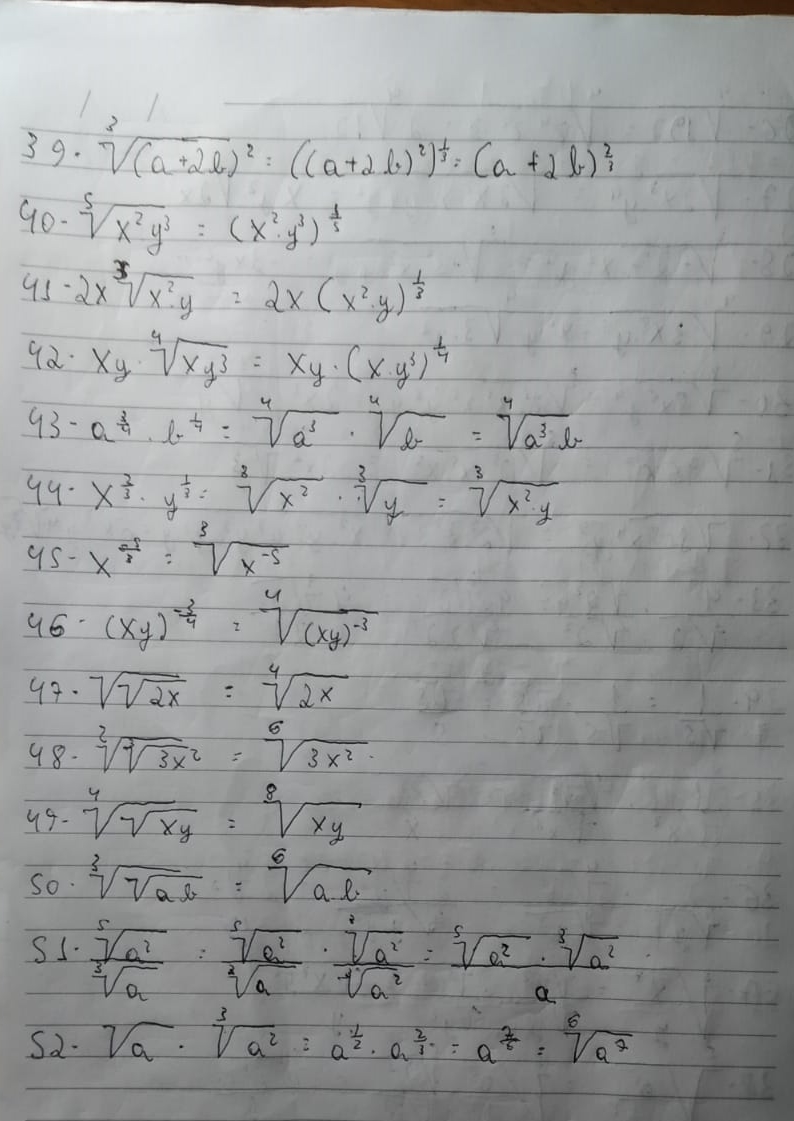 39. ∛(a+2b)² = ((a+2b)²)^(1/3) = (a+2b)^(2/3)
40- ⁵√(x²y³) = (x²·y³)^(1/5)
41- 2x ∛(x²y) = 2x (x²·y)^(1/3)
42- xy ⁴√(xy³) = xy·(x·y³)^(1/4)
43- a^(3/4) · b^(1/4) = ⁴√(a³) · ⁴√b = ⁴√(a³·b)
44- x^(2/3) · y^(1/3) = ∛(x²) · ∛y = ∛(x²·y)
45- x^(-5/3) = ∛(x⁻⁵)
46- (xy)^(-3/4) = ⁴√((xy)⁻³)
47- √√(2x) = ⁴√(2x)
48- ²√∛(3x²) = ⁶√(3x²)
49- ⁴√√(xy) = ⁸√(xy)
50- ∛√(ab) = ⁶√(ab)
51- ⁵√(a²) / ∛a = ⁵√(a²) / ∛a · ∛(a²) / ∛(a²) = ⁵√(a²) · ∛(a²) / a
52- √a · ∛(a²) = a^(1/2) · a^(2/3) = a^(7/6) = ⁶√(a⁷)